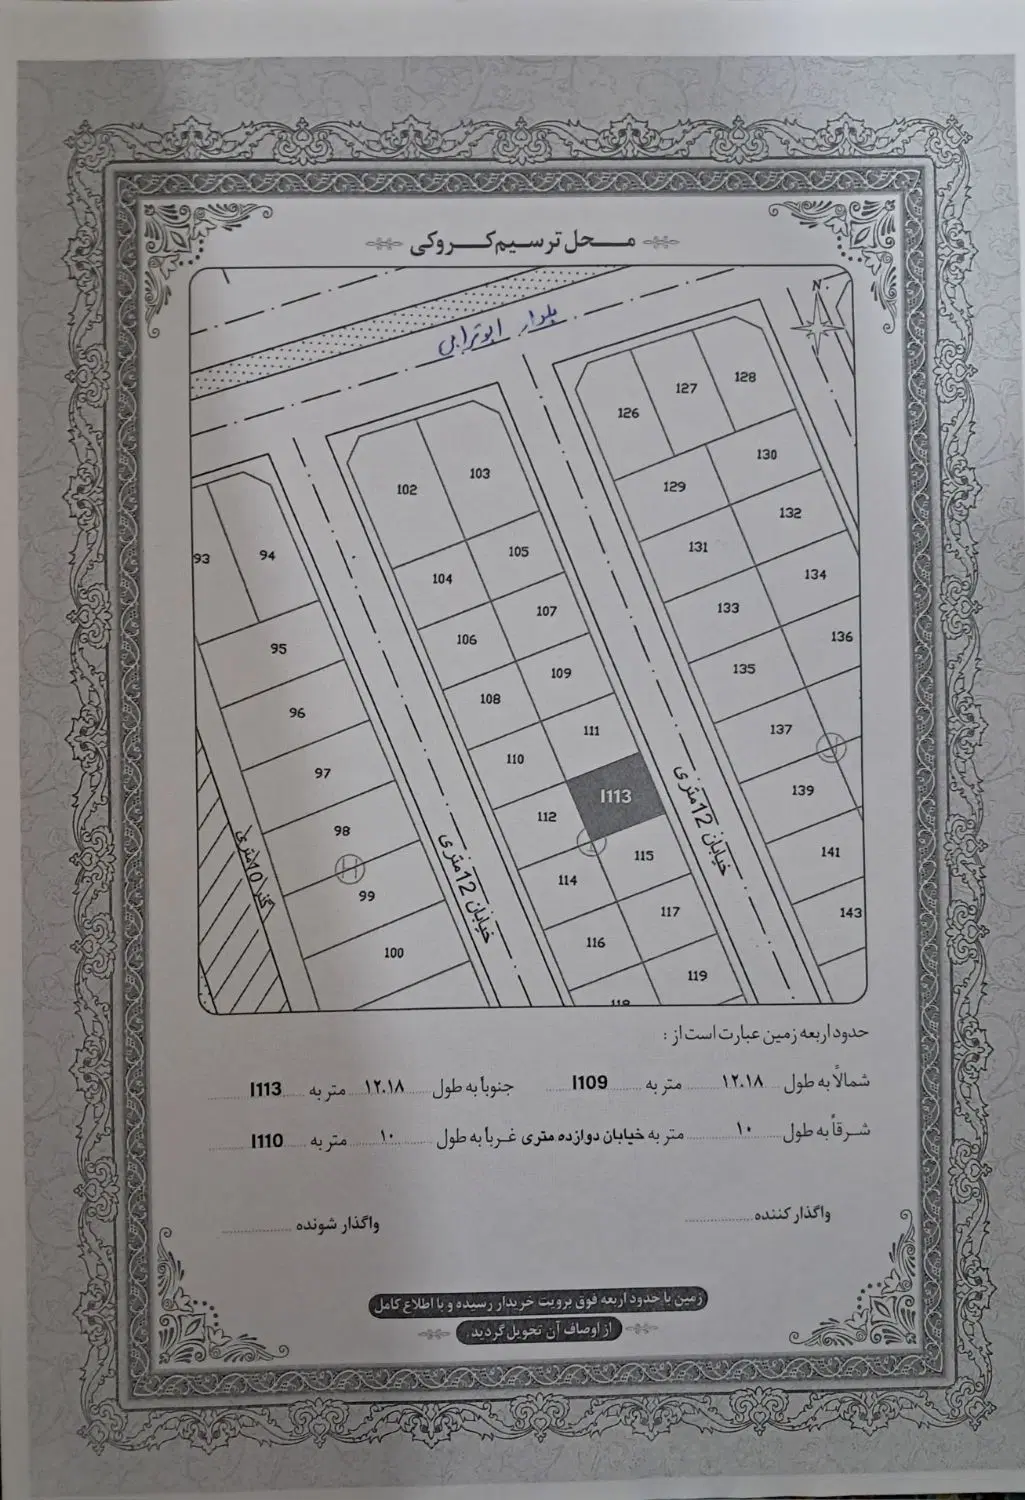 محل ترسیم کروکی
N
بلوار ابوترابی
126 127 128
129 130
131 132
133 134
135 136
137
139
141
143
102 103
104 105
106 107
108 109
110 111
112 I113
114 115
116 117
119
93 94
95
96
97
98
99
100
خیابان 12 متری
خیابان 12 متری
گذر 10 متری
حدود اربعه زمین عبارت است از :
شمالاً به طول ۱۲.۱۸ متر به I109 جنوباً به طول ۱۲.۱۸ متر به I113
شرقاً به طول ۱۰ متر به خیابان دوازده متری غرباً به طول ۱۰ متر به I110
واگذار کننده واگذار شونده
زمین با حدود اربعه فوق برویت خریدار رسیده و با اطلاع کامل
از اوصاف آن تحویل گردید.